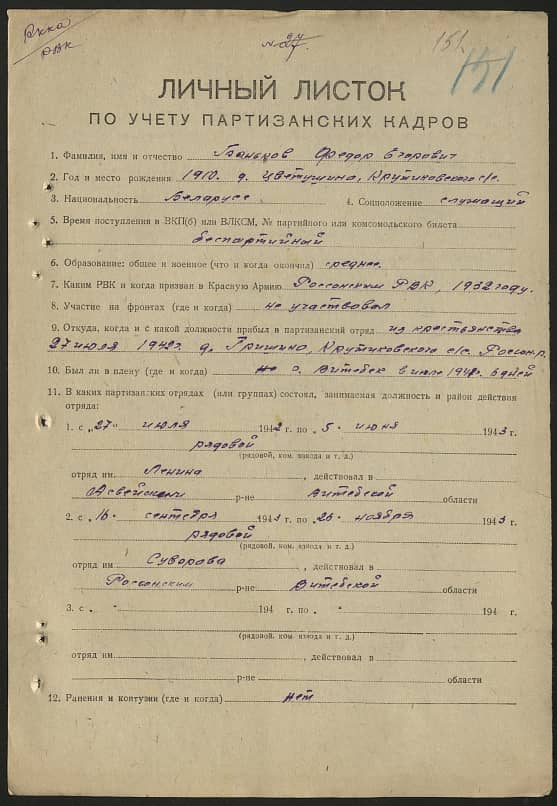 РККА
РВК
№ 27
151
151
ЛИЧНЫЙ ЛИСТОК
ПО УЧЕТУ ПАРТИЗАНСКИХ КАДРОВ
1. Фамилия, имя и отчество Федор Егорович
2. Год и место рождения 1910. д. Цветушино, Крутиковского с/с.
3. Национальность Беларусс 4. Соцположение служащий
5. Время поступления в ВКП(б) или ВЛКСМ, № партийного или комсомольского билета
беспартийный
6. Образование: общее и военное (что и когда окончил) среднее.
7. Каким РВК и когда призван в Красную Армию Россонским РВК, 1932 году.
8. Участие на фронтах (где и когда) не участвовал
9. Откуда, когда и с какой должности прибыл в партизанский отряд из крестьянства
27 июля 1942 г. д. Гришино, Крутиковского с/с. Россон. р.
10. Был ли в плену (где и когда) г. Витебск в июле 1941. 6 дней
11. В каких партизанских отрядах (или группах) состоял, занимаемая должность и район действия
отряда:
1. с „27“ июля 1942 г. по 5. июня 1943 г.
рядовой
(рядовой, ком. взвода и т. д.)
отряд им. Ленина, действовал в
Освейском р-не Витебской области
2. с 16. сентября 1943 г. по 26. ноября 1943 г.
рядовой
(рядовой, ком. взвода и т. д.)
отряд им. Суворова, действовал в
Россонским р-не Витебской области
3. с „ “ 194 г. по „ “ 194 г.
(рядовой, ком. взвода и т. д.)
отряд им. , действовал в
р-не области
12. Ранения и контузии (где и когда) нет